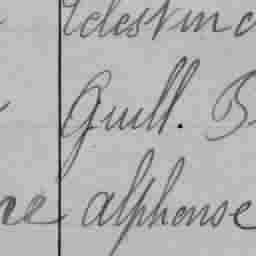 Celestin
Guill. B
ne alphonse